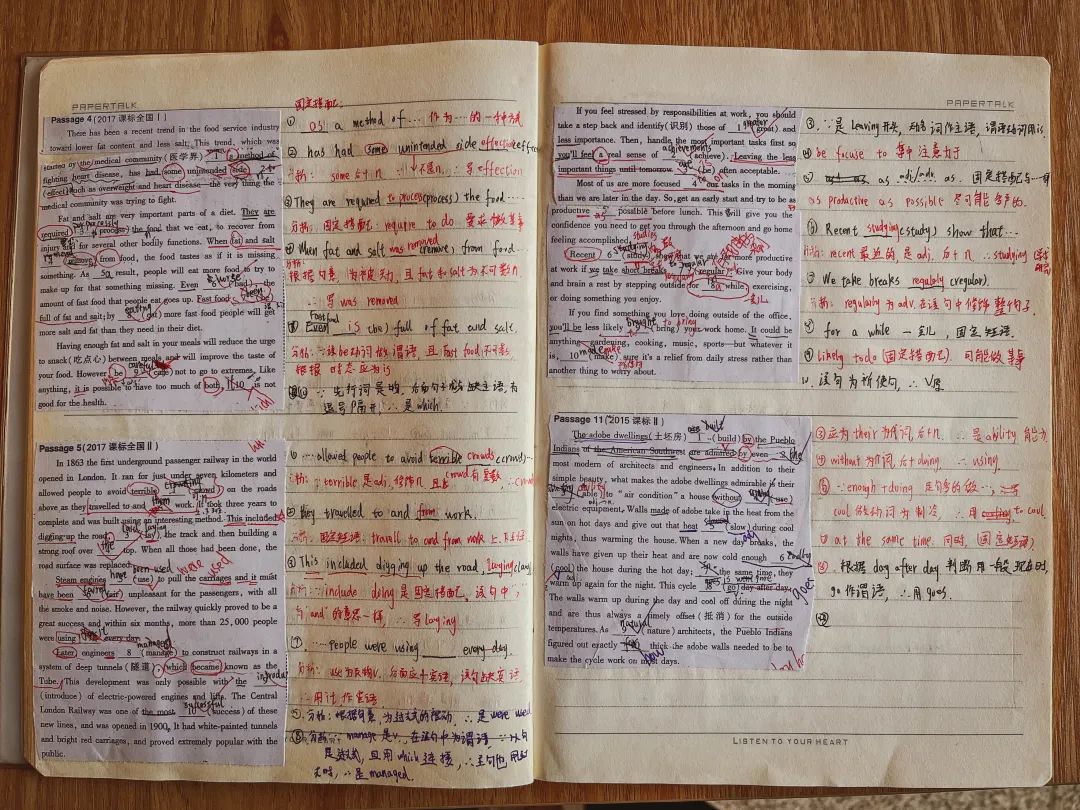 PAPERTALK
Passage 4 (2017 课标全国Ⅰ)
There has been a recent trend in the food service industry
toward lower fat content and less salt. This trend, which was
started by the medical community (医学界) 1 a method of
fighting heart disease, has had some unintended side 2
(effect) such as overweight and heart disease—the very thing the
medical community was trying to fight.
Fat and salt are very important parts of a diet. They are
required 3 (process) the food that we eat, to recover from
injury and for several other bodily functions. When fat and salt
4 (remove) from food, the food tastes as if it is missing
something. As 5 result, people will eat more food to try to
make up for that something missing. Even 6 (bad), the
amount of fast food that people eat goes up. Fast food 7 (be)
full of fat and salt; by 8 (eat) more fast food people will get
more salt and fat than they need in their diet.
Having enough fat and salt in your meals will reduce the urge
to snack (吃点心) between meals and will improve the taste of
your food. However, be 9 (care) not to go to extremes. Like
anything, it is possible to have too much of both, 10 is not
good for the health.
Passage 5 (2017 课标全国Ⅱ)
In 1863 the first underground passenger railway in the world
opened in London. It ran for just under seven kilometers and
allowed people to avoid terrible 1 (crowd) on the roads
above as they travelled to and 2 work. It took three years to
complete and was built using an interesting method. This included
digging up the road, 3 (lay) the track and then building a
strong roof over 4 top. When all those had been done, the
road surface was replaced.
Steam engines 5 (use) to pull the carriages and it must
have been 6 (fair) unpleasant for the passengers, with all
the smoke and noise. However, the railway quickly proved to be a
great success and within six months, more than 25,000 people
were using 7 every day.
Later engineers 8 (manage) to construct railways in a
system of deep tunnels (隧道), which became known as the
Tube. This development was only possible with the
(introduce) of electric-powered engines and lifts. The Central
London Railway was one of the most 10 (success) of these
new lines, and was opened in 1900. It had white-painted tunnels
and bright red carriages, and proved extremely popular with the
public.
固定搭配:
① as a method of… 作为…的一种方式
② has had some unintended side effect
some + n.
③ They are required to process (process) the food
分析: 固定搭配: require to do 要求做某事
④ When fat and salt was removed (remove) from food…
分析:
根据句意, 为被动, 且 fat 和 salt 为不可数n.
∴ 写 was removed
Fast food
Even is (be) full of fat and salt.
分析: ∵ 该be动词做谓语, 且 fast food 不可数
根据 时态应为is
⑩ ∵ 先行词是物, 后面句子
逗号隔开 ∴ 是 which.
① …allowed people to avoid terrible crowds (crowd)…
分析: ∵ terrible 是 adj. 修饰 n. 且 crowd 有复数
② they travelled to and from work.
分析: 固定短语: travell to and from work 上下班
③ This included digging up the road, laying (lay)
分析: ∵ include doing 是固定搭配, 该句中
"and" 的意思一样, ∴ 写 laying
⑦ …people were using ____ every day.
∴ 用 it 作宾语
⑤ 分析: 根据句意, 为过去式的被动, ∴ 是 were used
⑧ 分析: manage 是v. 在该句中为谓语
是过去式, 且用 which 连接, ∴ 主句也用过
去时, ∴ 是 managed.
PAPERTALK
If you feel stressed by responsibilities at work, you should
take a step back and identify (识别) those of 1 (great) and
less importance. Then, handle the most important tasks first so
you'll feel a real sense of 2 (achieve). Leaving the less
important things until tomorrow 3 (be) often acceptable.
Most of us are more focused 4 our tasks in the morning
than we are later in the day. So, get an early start and try to be as
productive 5 possible before lunch. This will give you the
confidence you need to get you through the afternoon and go home
feeling accomplished.
Recent 6 (study) show that we are more productive
at work if we take short breaks 7 (regular). Give your body
and brain a rest by stepping outside for 8 while, exercising,
or doing something you enjoy.
If you find something you love doing outside of the office,
you'll be less likely 9 (bring) your work home. It could be
anything—gardening, cooking, music, sports—but whatever it
is, 10 (make) sure it's a relief from daily stress rather than
another thing to worry about.
Passage 11 (2015 课标Ⅱ)
The adobe dwellings (土坯房) 1 (build) by the Pueblo
Indians of the American Southwest are admired by even 2
most modern of architects and engineers. In addition to their
simple beauty, what makes the adobe dwellings admirable is their
(able) to "air condition" a house without (use)
electric equipment. Walls made of adobe take in the heat from the
sun on hot days and give out that heat 5 (slow) during cool
nights, thus warming the house. When a new day breaks, the
walls have given up their heat and are now cold enough 6
(cool) the house during the hot day; the same time, they
warm up again for the night. This cycle 8 (go) day after day:
The walls warm up during the day and cool off during the night
and are thus always a timely offset (抵消) for the outside
temperatures. As (nature) architects, the Pueblo Indians
figured out exactly thick the adobe walls needed to be to
make the cycle work on most days.
③ ∵ 是 Leaving 开头, 动名词作主语, 谓语动词用 is.
④ be focuse to 集中注意力于
as adj/adv. as. 固定搭配
as productive as possible 尽可能多产的.
⑥ Recent studying (study) show that…
分析: recent 最近的 是 adj. 后+n. ∴ studying
⑦ We take breaks regularly (regular).
分析: regularly 为 adv. 在该句中修饰 整个句子.
⑧ for a while 一会儿, 固定短语.
⑨ likely to do (固定搭配) 可能做某事
10. 该句为祈使句, ∴ V原
③ 应为 their 为代词, 后+n. ∴ 是 ability 能力
④ without 为介词, 后+doing, ∴ using.
∴ 用 to cool.
⑦ at the same time. 同时, (固定短语)
⑧ 根据 day after day 判断用一般现在时,
go 作谓语, ∴ 用 goes.
LISTEN TO YOUR HEART